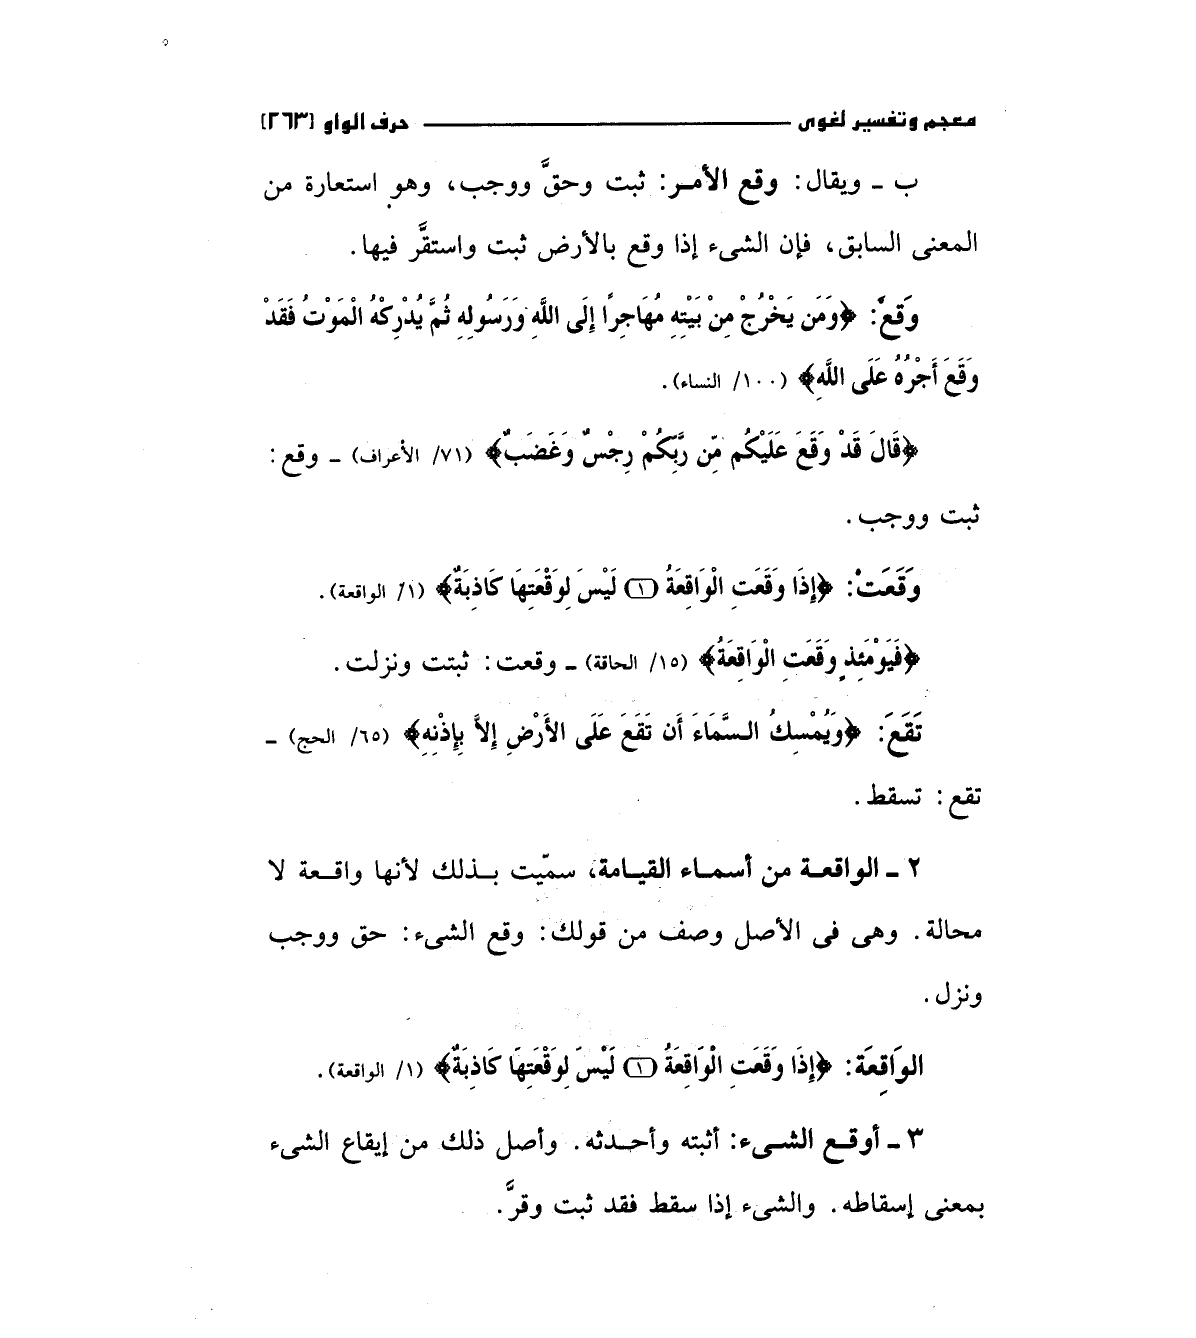 معجم وتفسير لغوى حرف الواو [٢٦٣]
ب ـ ويقال: وقع الأمـر: ثبت وحقَّ ووجب، وهو استعارة من
المعنى السابق، فإن الشىء إذا وقع بالأرض ثبت واستقَّر فيها.
وَقَعَ: ﴿وَمَن يَخْرُجْ مِنْ بَيْتِهِ مُهَاجِرًا إِلَى اللَّهِ وَرَسُولِهِ ثُمَّ يُدْرِكْهُ الْمَوْتُ فَقَدْ
وَقَعَ أَجْرُهُ عَلَى اللَّهِ﴾ (١٠٠/ النساء).
﴿قَالَ قَدْ وَقَعَ عَلَيْكُم مِّن رَّبِّكُمْ رِجْسٌ وَغَضَبٌ﴾ (٧١/ الأعراف) ـ وقع:
ثبت ووجب.
وَقَعَتْ: ﴿إِذَا وَقَعَتِ الْوَاقِعَةُ (١) لَيْسَ لِوَقْعَتِهَا كَاذِبَةٌ﴾ (١/ الواقعة).
﴿فَيَوْمَئِذٍ وَقَعَتِ الْوَاقِعَةُ﴾ (١٥/ الحاقة) ـ وقعت: ثبتت ونزلت.
تَقَعَ: ﴿وَيُمْسِكُ السَّمَاءَ أَن تَقَعَ عَلَى الأَرْضِ إِلاَّ بِإِذْنِهِ﴾ (٦٥/ الحج) ـ
تقع: تسقط.
٢ ـ الواقعـة من أسمـاء القيـامة، سمّيت بـذلك لأنها واقـعة لا
محالة. وهى فى الأصل وصف من قولك: وقع الشىء: حق ووجب
ونزل.
الوَاقِعَة: ﴿إِذَا وَقَعَتِ الْوَاقِعَةُ (١) لَيْسَ لِوَقْعَتِهَا كَاذِبَةٌ﴾ (١/ الواقعة).
٣ ـ أوقـع الشـىء: أثبته وأحـدثه. وأصل ذلك من إيقاع الشىء
بمعنى إسقاطه. والشىء إذا سقط فقد ثبت وقرَّ.